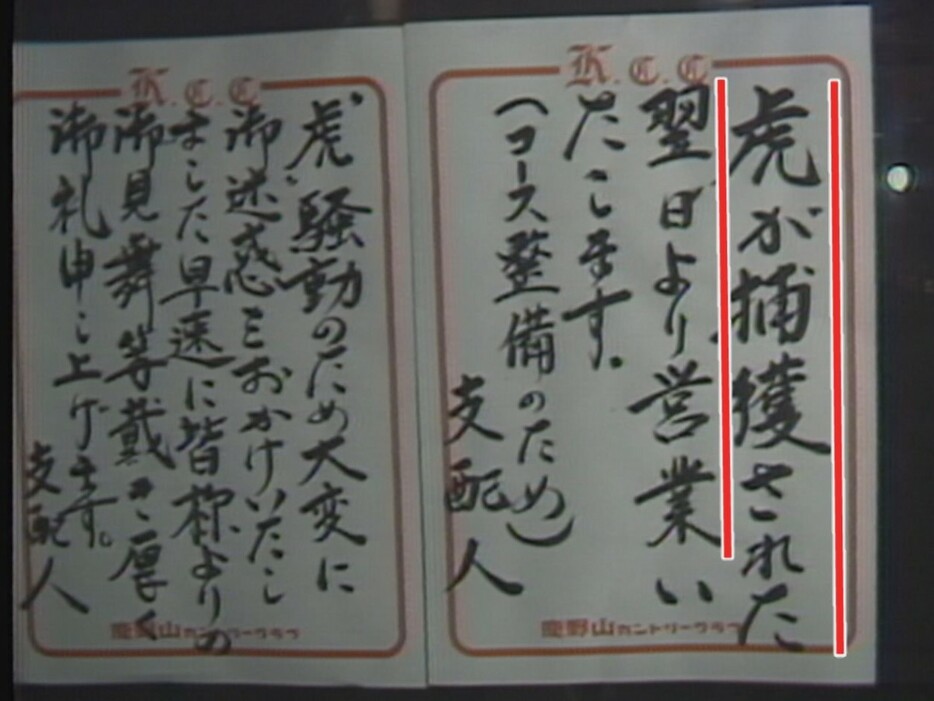 K.C.C
虎が捕獲された
翌日より営業い
たします。
（コース整備のため）
支配人
鹿野山カントリークラブ
K.C.C
"虎"騒動のため大変に
御迷惑をおかけいたし
ました早速に皆様よりの
御見舞等戴き厚く
御礼申し上げます。
支配人
鹿野山カントリークラブ